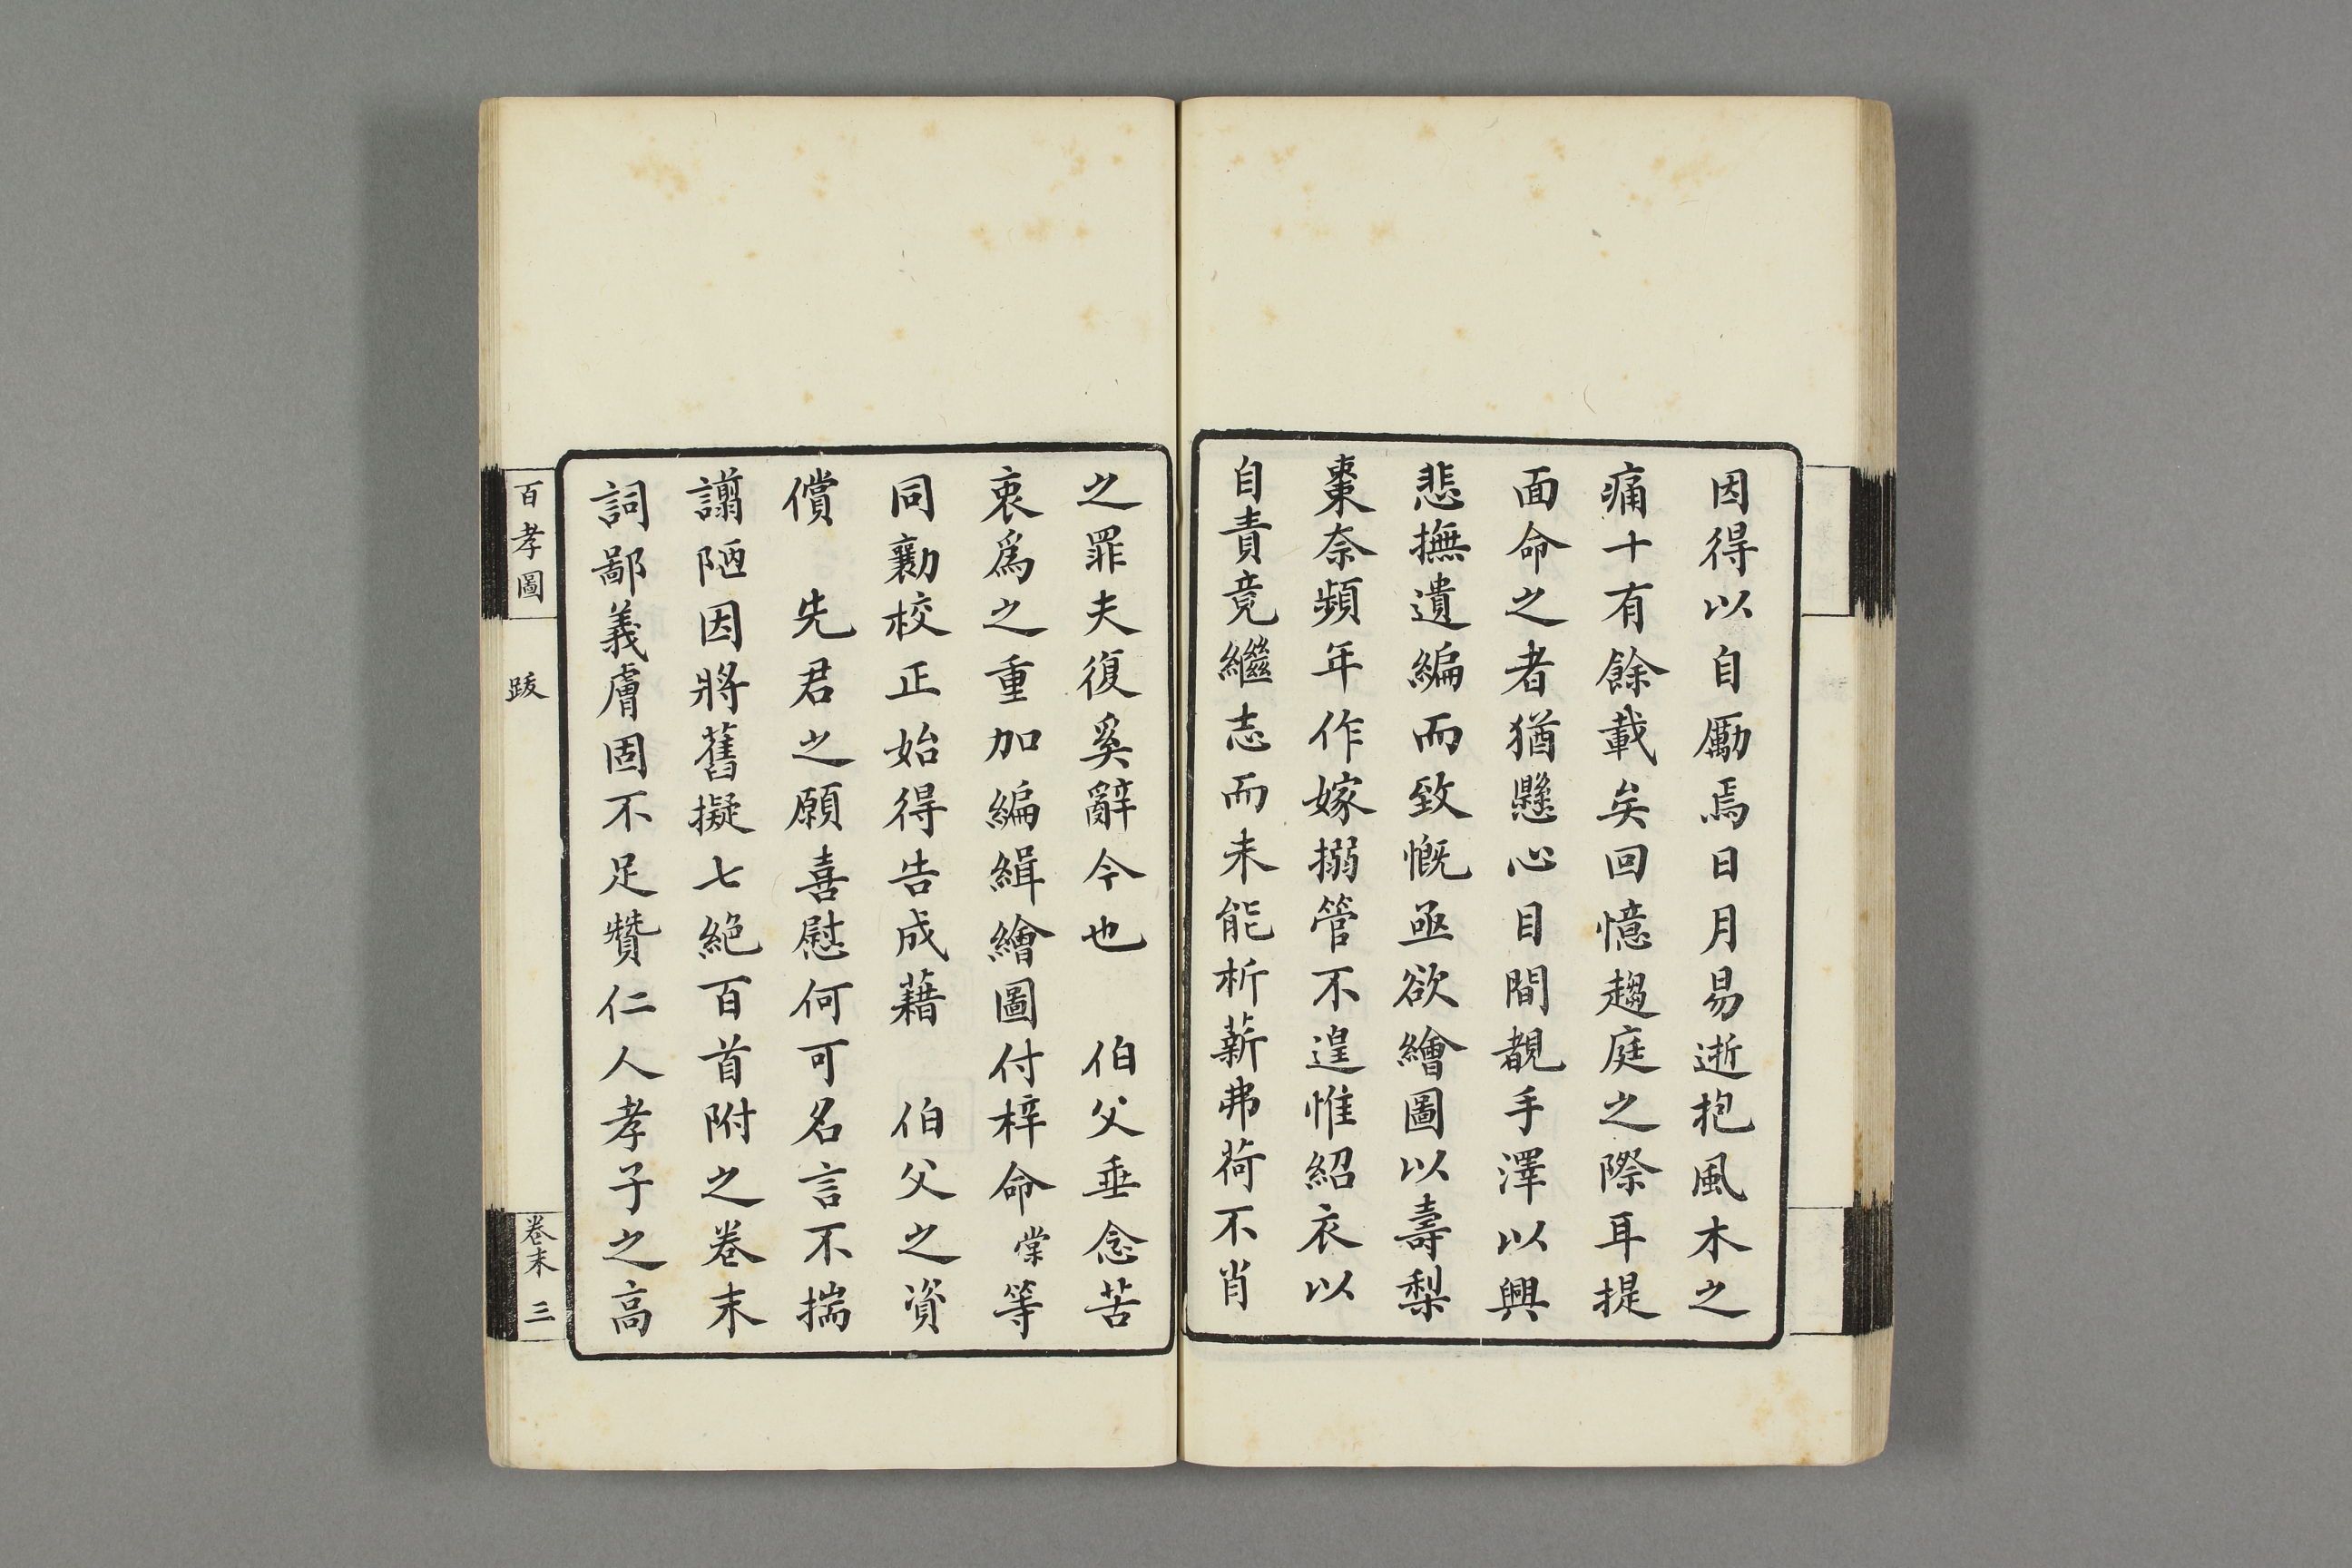 因得以自勵焉日月易逝抱風木之
痛十有餘載矣回憶趨庭之際耳提
面命之者猶懸心目間覩手澤以興
悲撫遺編而致慨亟欲繪圖以壽梨
棗奈頻年作嫁搦管不遑惟紹衣以
自責竟繼志而未能析薪弗荷不肖
之罪夫復奚辭今也　伯父垂念苦
衷爲之重加編緝繪圖付梓命棠等
同勷校正始得告成藉　伯父之資
償　先君之願喜慰何可名言不揣
譾陋因將舊擬七絕百首附之卷末
詞鄙義膚固不足贊仁人孝子之高
百孝圖　跋　卷末　三